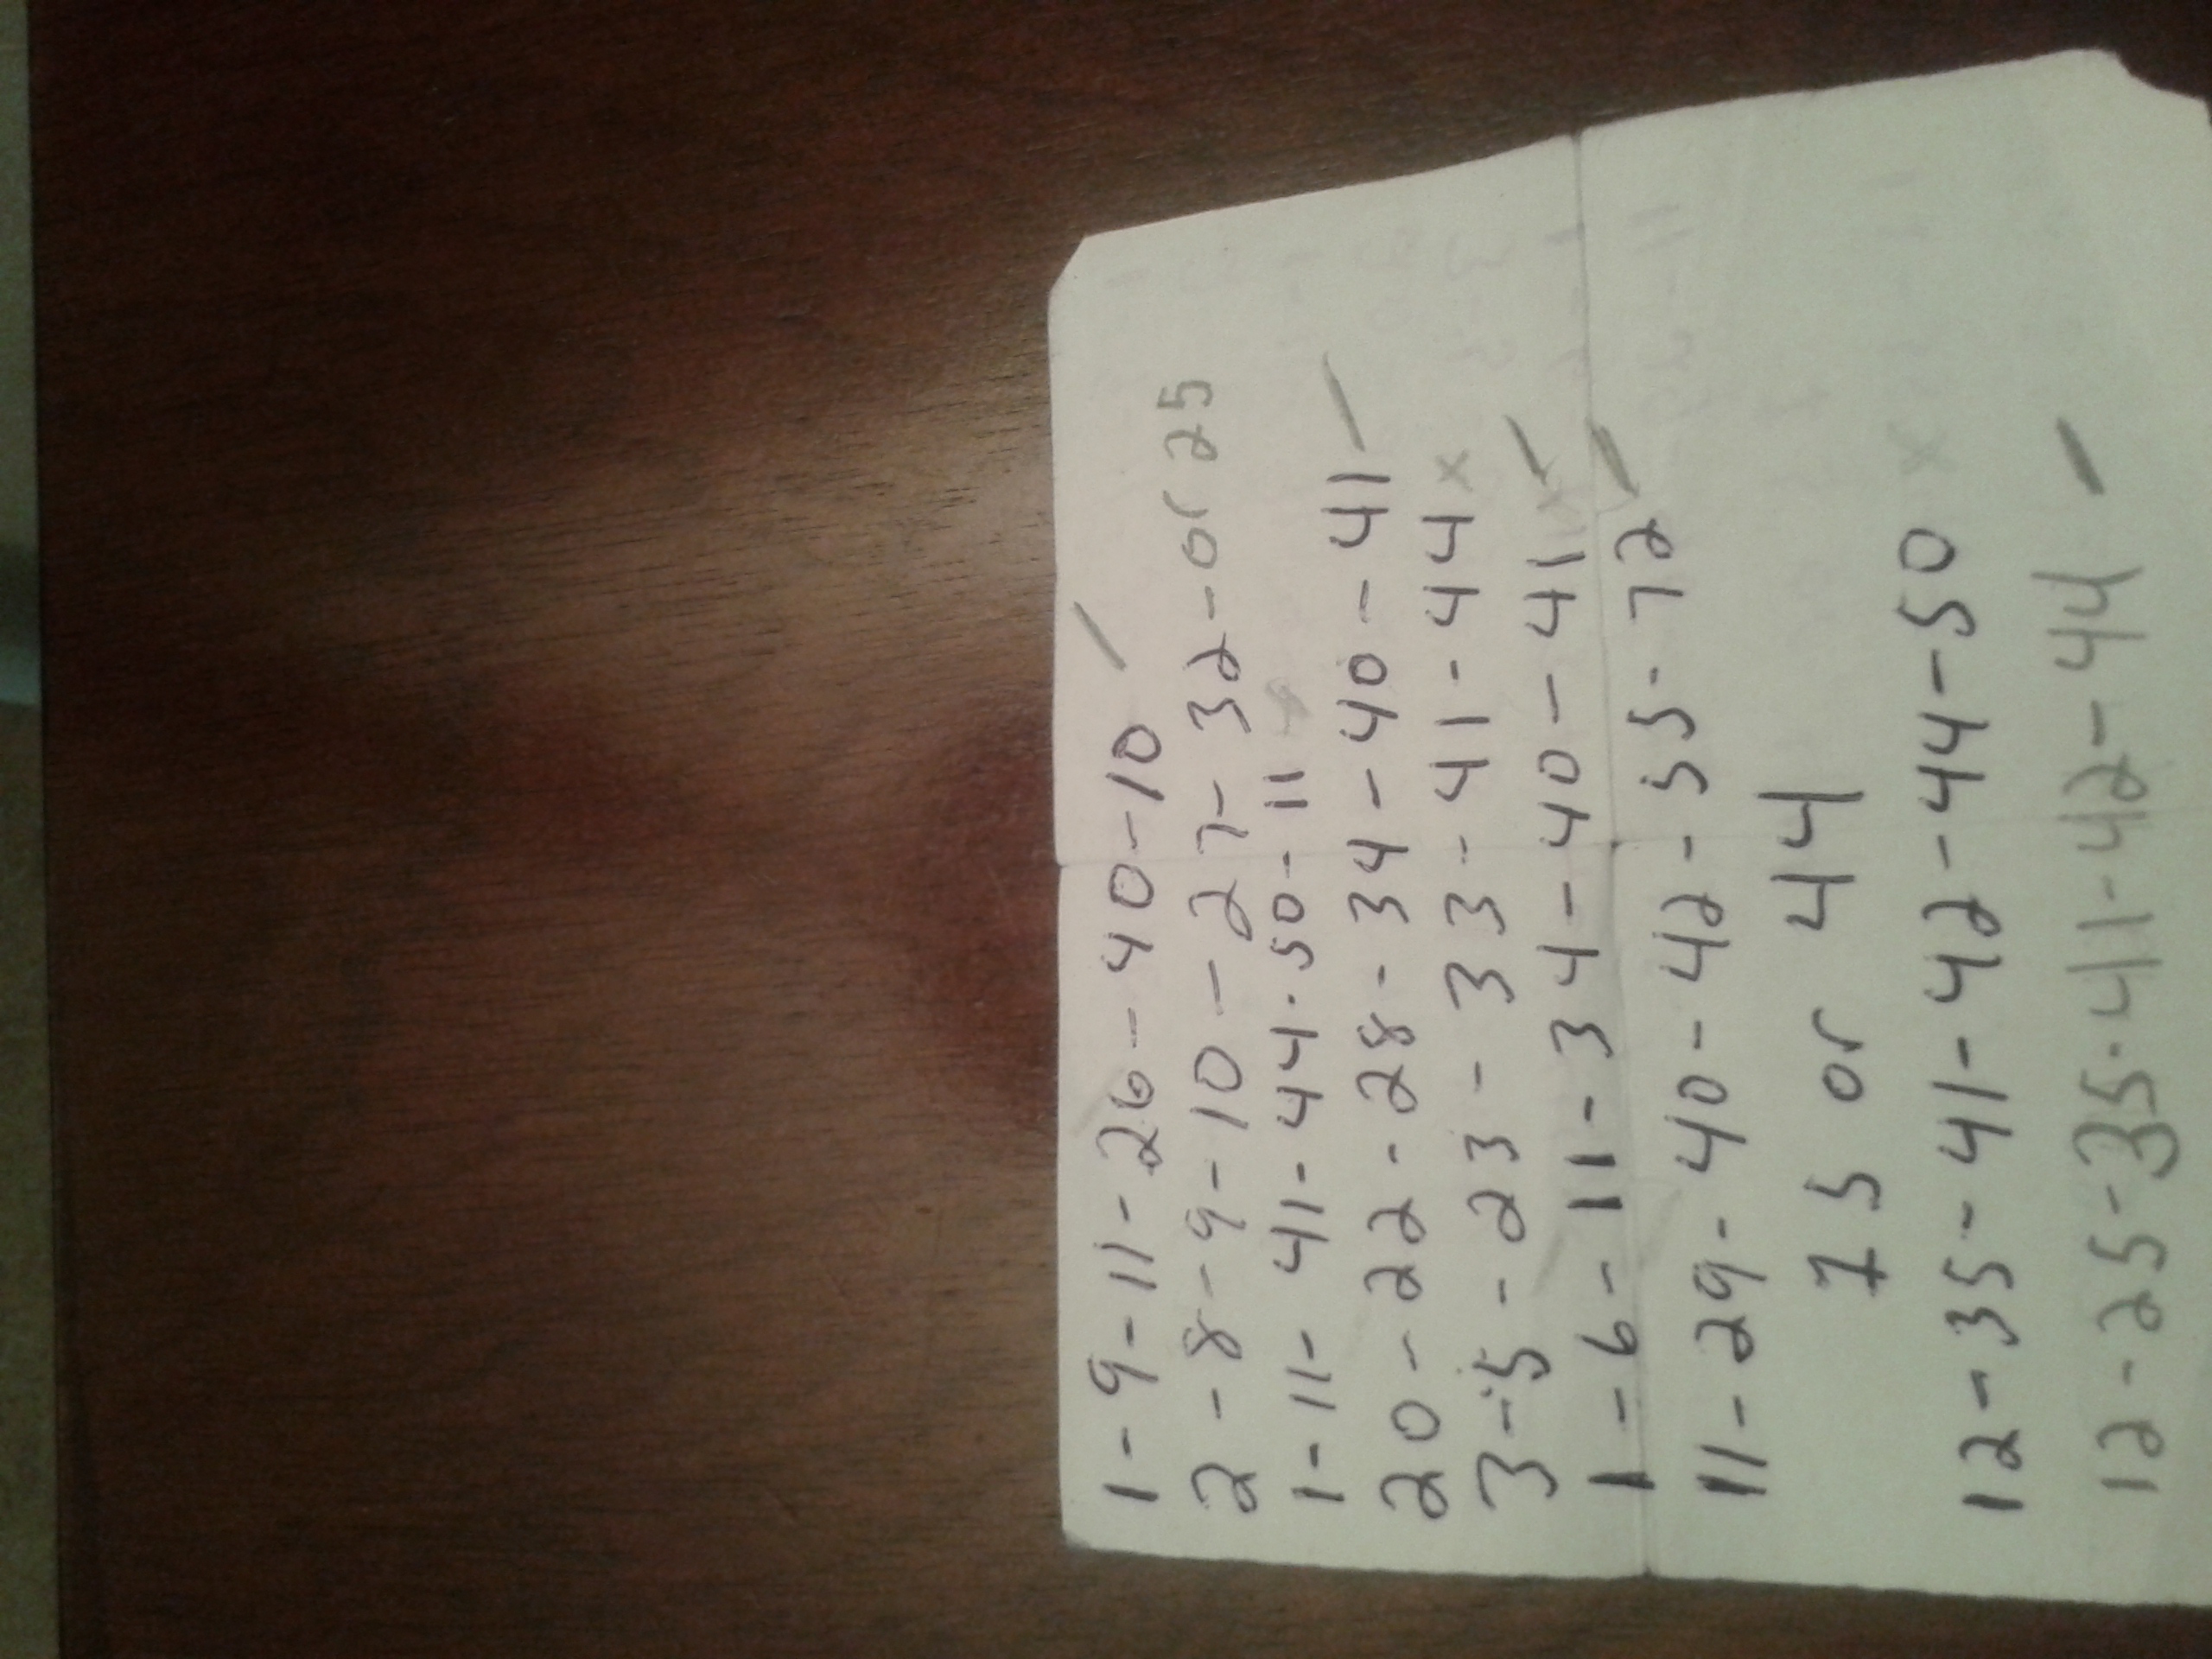 1-9-11-26-40-10
2-8-9-10-27-32-or 25
1-11-41-44-50-11
20-22-28-34-40-41
3-5-23-33-41-44 x
1-6-11-34-40-41
11-29-40-42-55-72
75 or 44
12-35-41-42-44-50 x
12-25-35-41-42-44